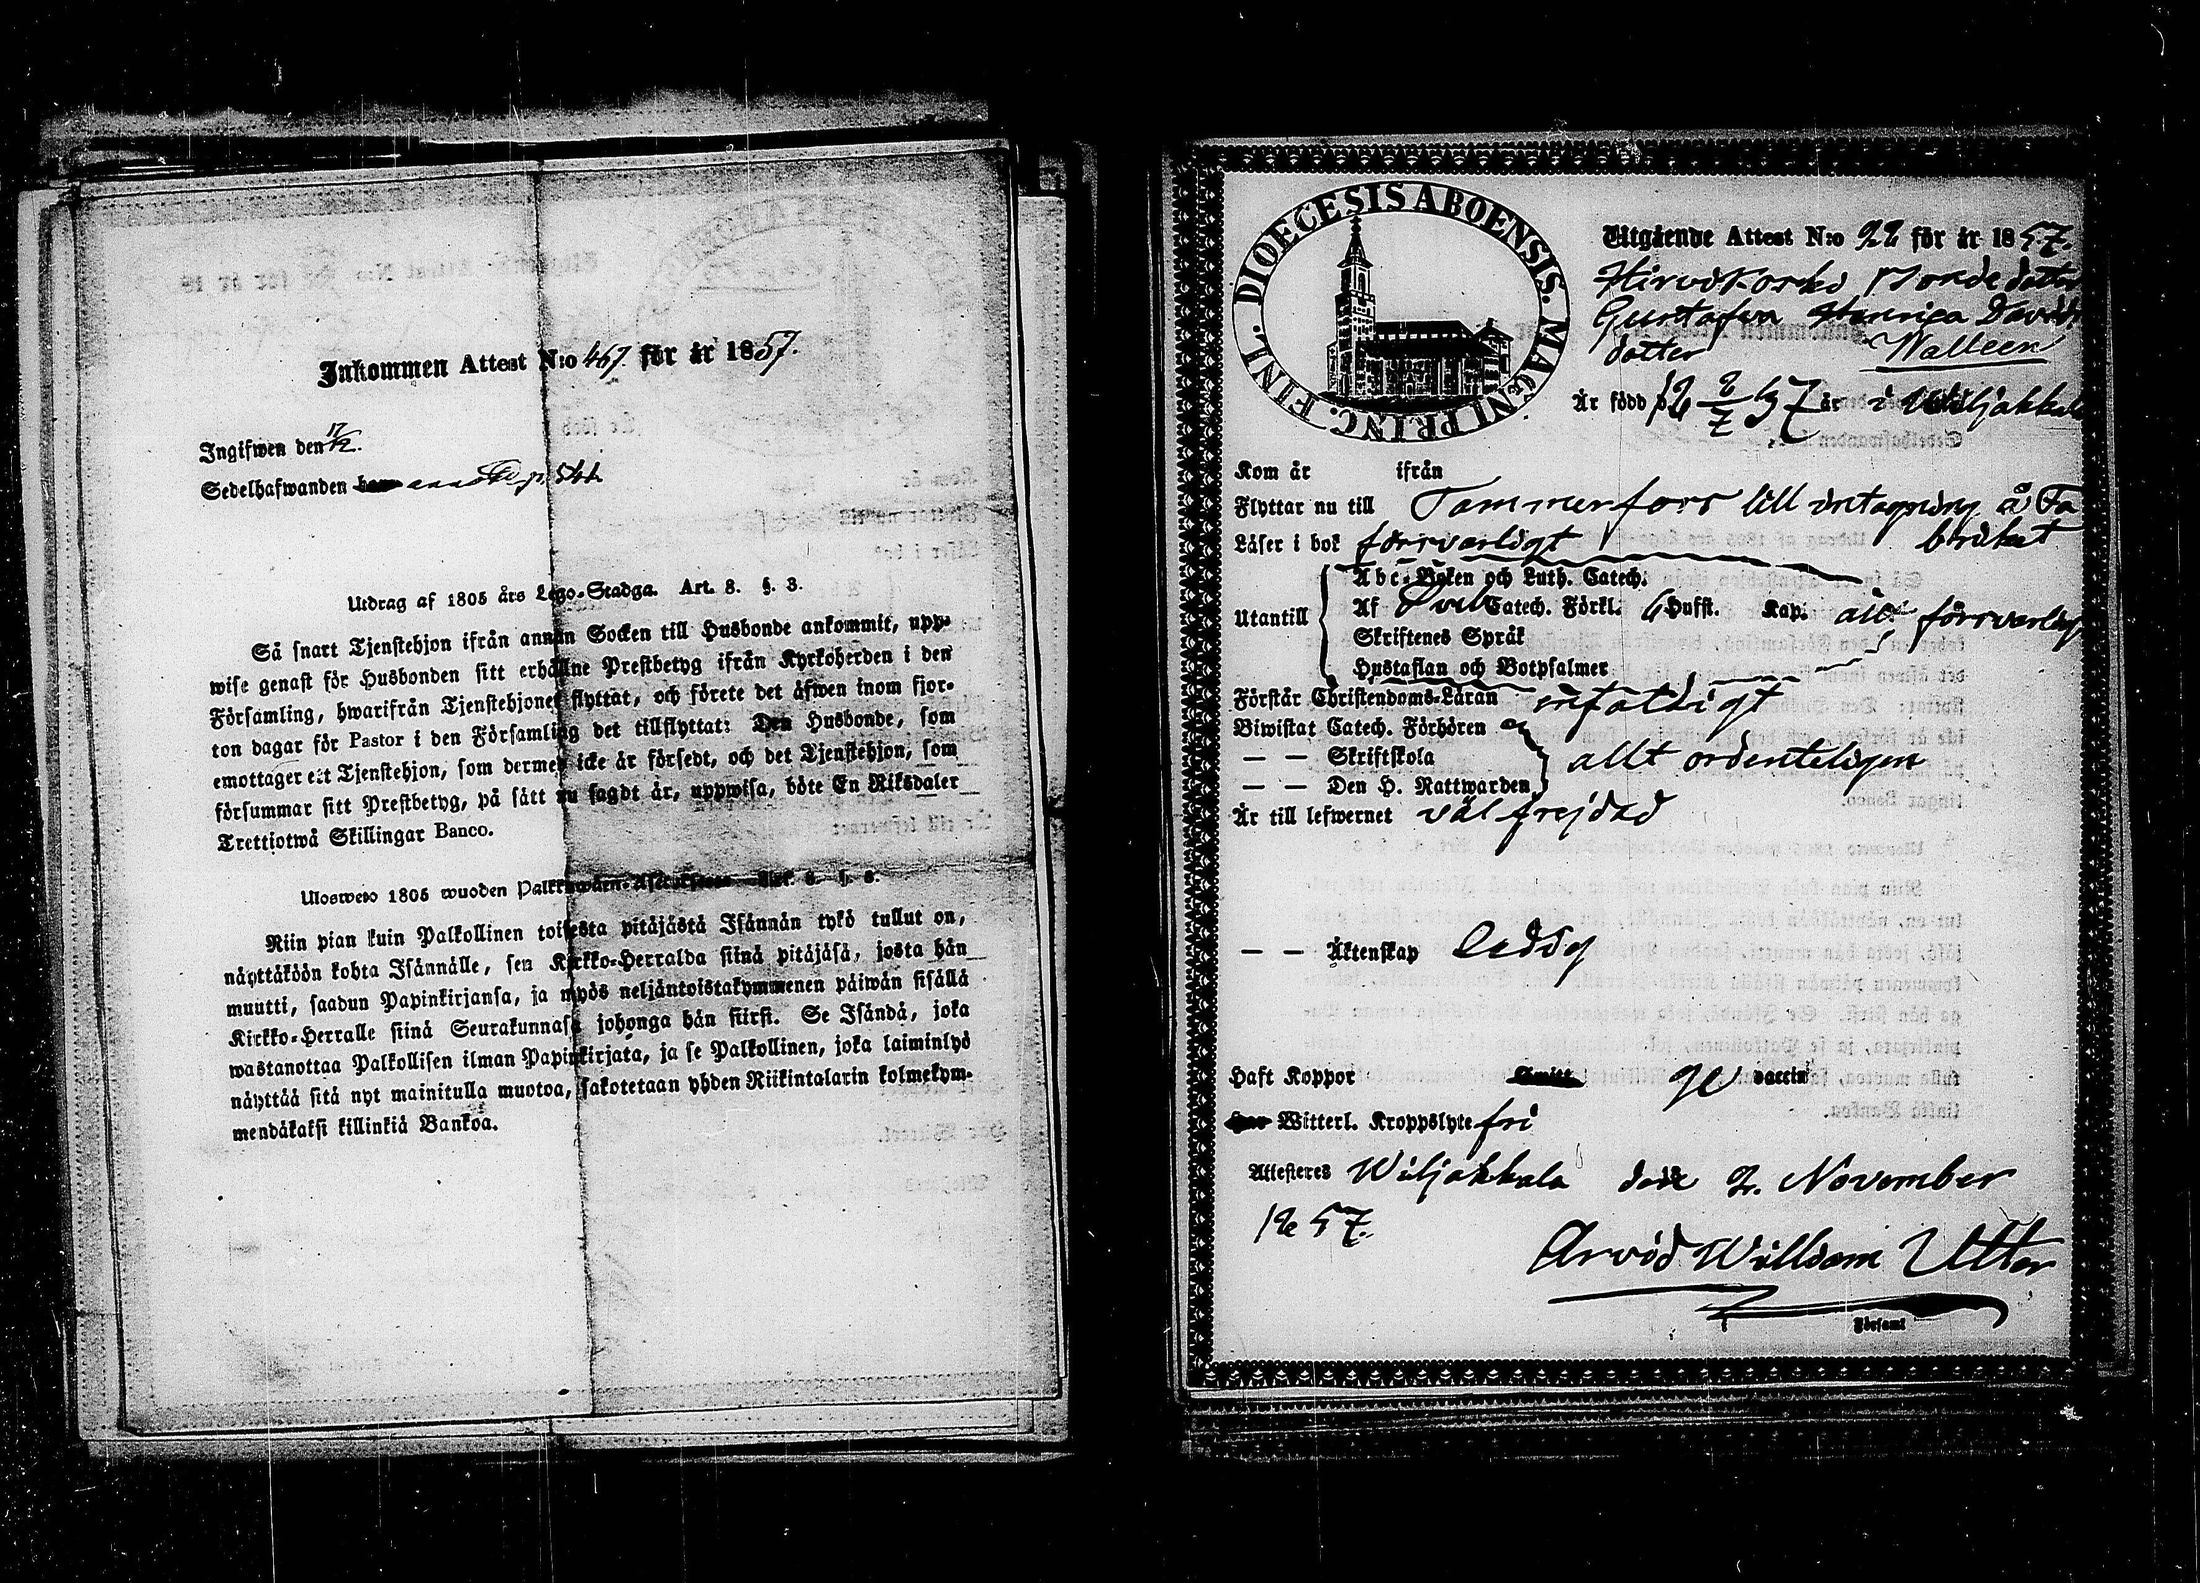 Inkommen Attest N:o 467. för år 1857.
Ingifwen den 17/12.
Sedelhafwanden
Utdrag af 1805 års Lego-Stadga. Art. 8. §. 3.
Så snart Tjenstehjon ifrån annan Socken till Husbonde ankommit, upp-
wise genast för Husbonden sitt erhållne Prestbetyg ifrån Kyrkoherden i den
Församling, hwarifrån Tjenstehjonet flyttat, och förete det äfwen inom fjor-
ton dagar för Pastor i den Församling det tillflyttat: Den Husbonde, som
emottager ett Tjenstehjon, som dermed icke är försedt, och det Tjenstehjon, som
försummar sitt Prestbetyg, på sätt nu sagdt är, uppwisa, böte En Riksdaler
Trettiotwå Skillingar Banco.
Ulosweto 1805 wuoden Palkkawäen-Asetuksesta. Art. 8. §. 3.
Niin pian kuin Palkollinen toisesta pitäjästä Isännän tykö tullut on,
näyttäköön kohta Isännälle, sen Kirkko-Herralda siinä pitäjäsä, josta hän
muutti, saadun Papinkirjansa, ja myös neljäntoistakymmenen päiwän sisällä
Kirkko-Herralle siinä Seurakunnasa johonga hän siirsi. Se Isändä, joka
wastanottaa Palkollisen ilman Papinkirjata, ja se Palkollinen, joka laiminlyö
näyttää sitä nyt mainitulla muotoa, sakotetaan yhden Riikintalarin kolmekym-
mendäkaksi killinkiä Bankoa.
FINL. DIOECESIS ABOENSIS. MAGNI PRINC.
Utgående Attest N:o 22 för år 1857.
Hirvikoski Bondedotter
Gustafva Henrica Davids
dotter Walleen
Är född d år i Wiljakkala
Kom år ifrån
Flyttar nu till Tammerfors till intagning å Fa
Läser i bok försvarligt briket
Abc-Boken och Luth. Catech.
Utantill Af Svel Catech. Förkl. Hufst. Kap. allt försvarligt
Skriftenes Språk
Hustaflan och Botpsalmer
Förstår Christendoms-Läran enfaldigt
Biwistat Catech. Förhören
— — Skriftskola allt ordenteligen
— — Den H. Nattwarden
Är till lefwernet väl frejdad
— — Äktenskap ledig
Haft Koppor vaccin
Witterl. Kroppslyte fri
Attesteres Wiljakkala den 2. November
1857.
Arvid William Utter
Församl